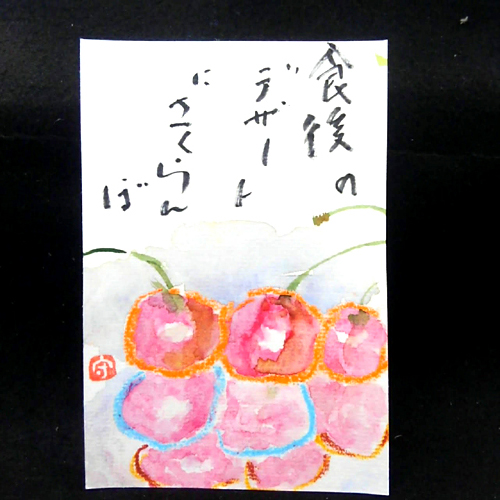 食後の
デザート
にさくらん
ぼ
守